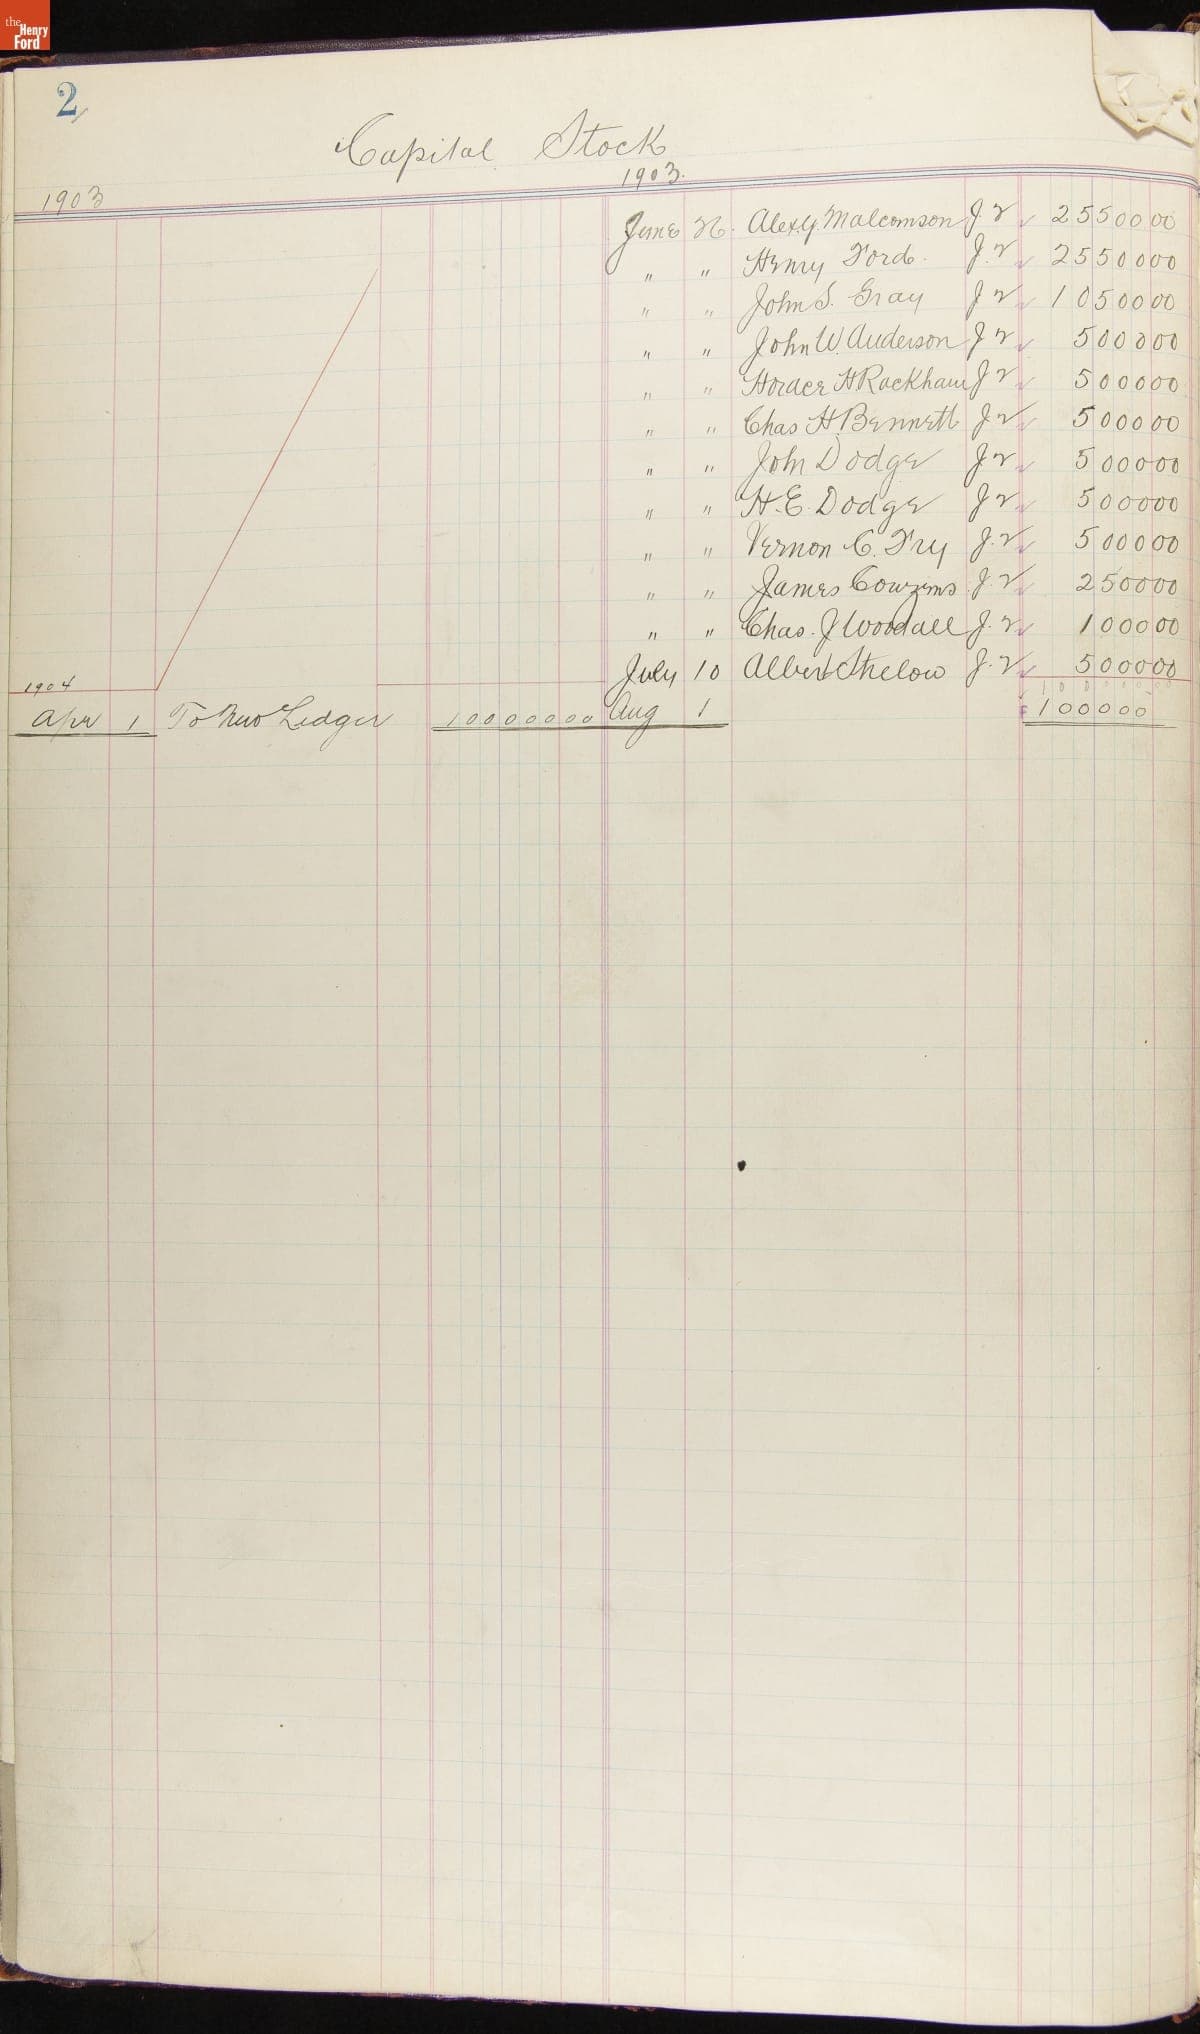 the Henry Ford
2
Capital Stock
1903
1903.
June 26. Alex. Y. Malcomson J 2 25500 00
" " Henry Ford. J. 2 25500 00
" " John S. Gray J 2 10500 00
" " John W. Anderson J 2 5000 00
" " Horace H Rackham J 2 5000 00
" " Chas H Bennett J 2 5000 00
" " John Dodge J 2 5000 00
" " H. E. Dodge J 2 5000 00
" " Vernon C. Fry J. 2 5000 00
" " James Couzens J. 2 2500 00
" " Chas. J Woodall J. 2 1000 00
July 10 Albert Strelow J. 2 5000 00
1904
Apr 1 To New Ledger 100000 00 Aug 1 100000